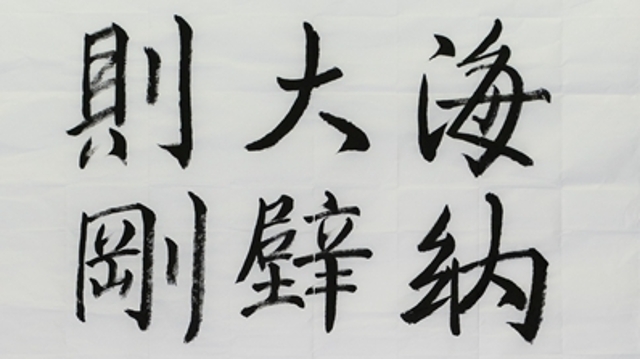 海納
大壁
則剛